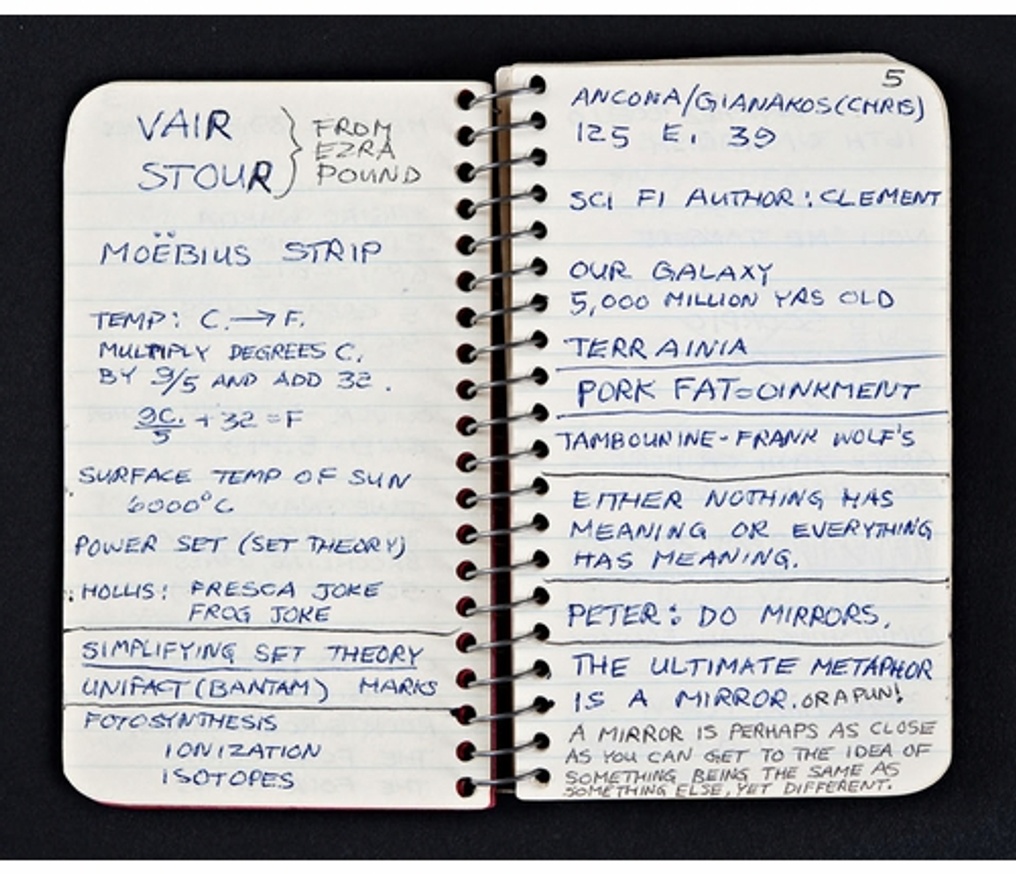 VAIR
STOUR
FROM
EZRA
POUND
MOËBIUS STRIP
TEMP: C. → F.
MULTIPLY DEGREES C.
BY 9/5 AND ADD 32.
9C./5 + 32 = F
SURFACE TEMP OF SUN
6000°C
POWER SET (SET THEORY)
HOLLIS: FRESCA JOKE
FROG JOKE
SIMPLIFYING SET THEORY
UNIFACT (BANTAM) MARKS
FOTOSYNTHESIS
IONIZATION
ISOTOPES
5
ANCONA/GIANAKOS (CHRIS)
125 E. 39
SCI FI AUTHOR: CLEMENT
OUR GALAXY
5,000 MILLION YRS OLD
TERRAINIA
PORK FAT=OINKMENT
TAMBOURINE-FRANK WOLF'S
EITHER NOTHING HAS
MEANING OR EVERYTHING
HAS MEANING.
PETER: DO MIRRORS.
THE ULTIMATE METAPHOR
IS A MIRROR. OR A PUN!
A MIRROR IS PERHAPS AS CLOSE
AS YOU CAN GET TO THE IDEA OF
SOMETHING BEING THE SAME AS
SOMETHING ELSE, YET DIFFERENT.